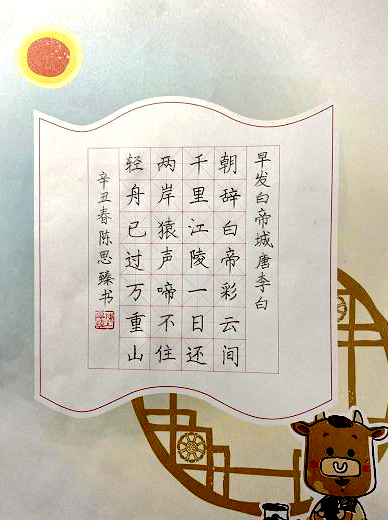 早发白帝城唐李白
朝辞白帝彩云间
千里江陵一日还
两岸猿声啼不住
轻舟已过万重山
辛丑春陈思臻书